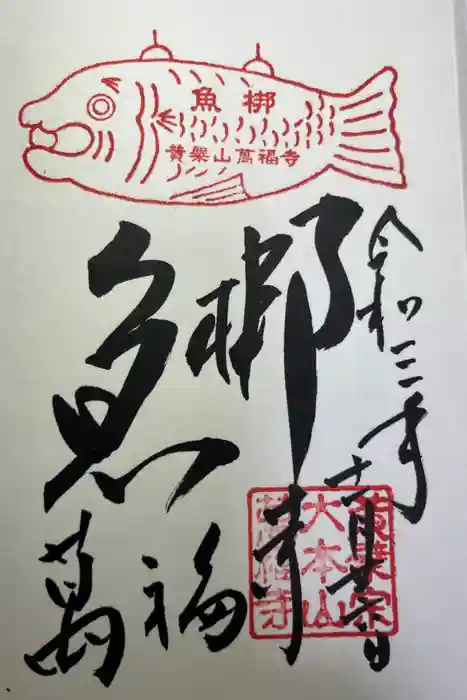 魚梆
黄檗山萬福寺
魚梆
萬福寺
令和三年
黄檗宗
大本山
萬福寺